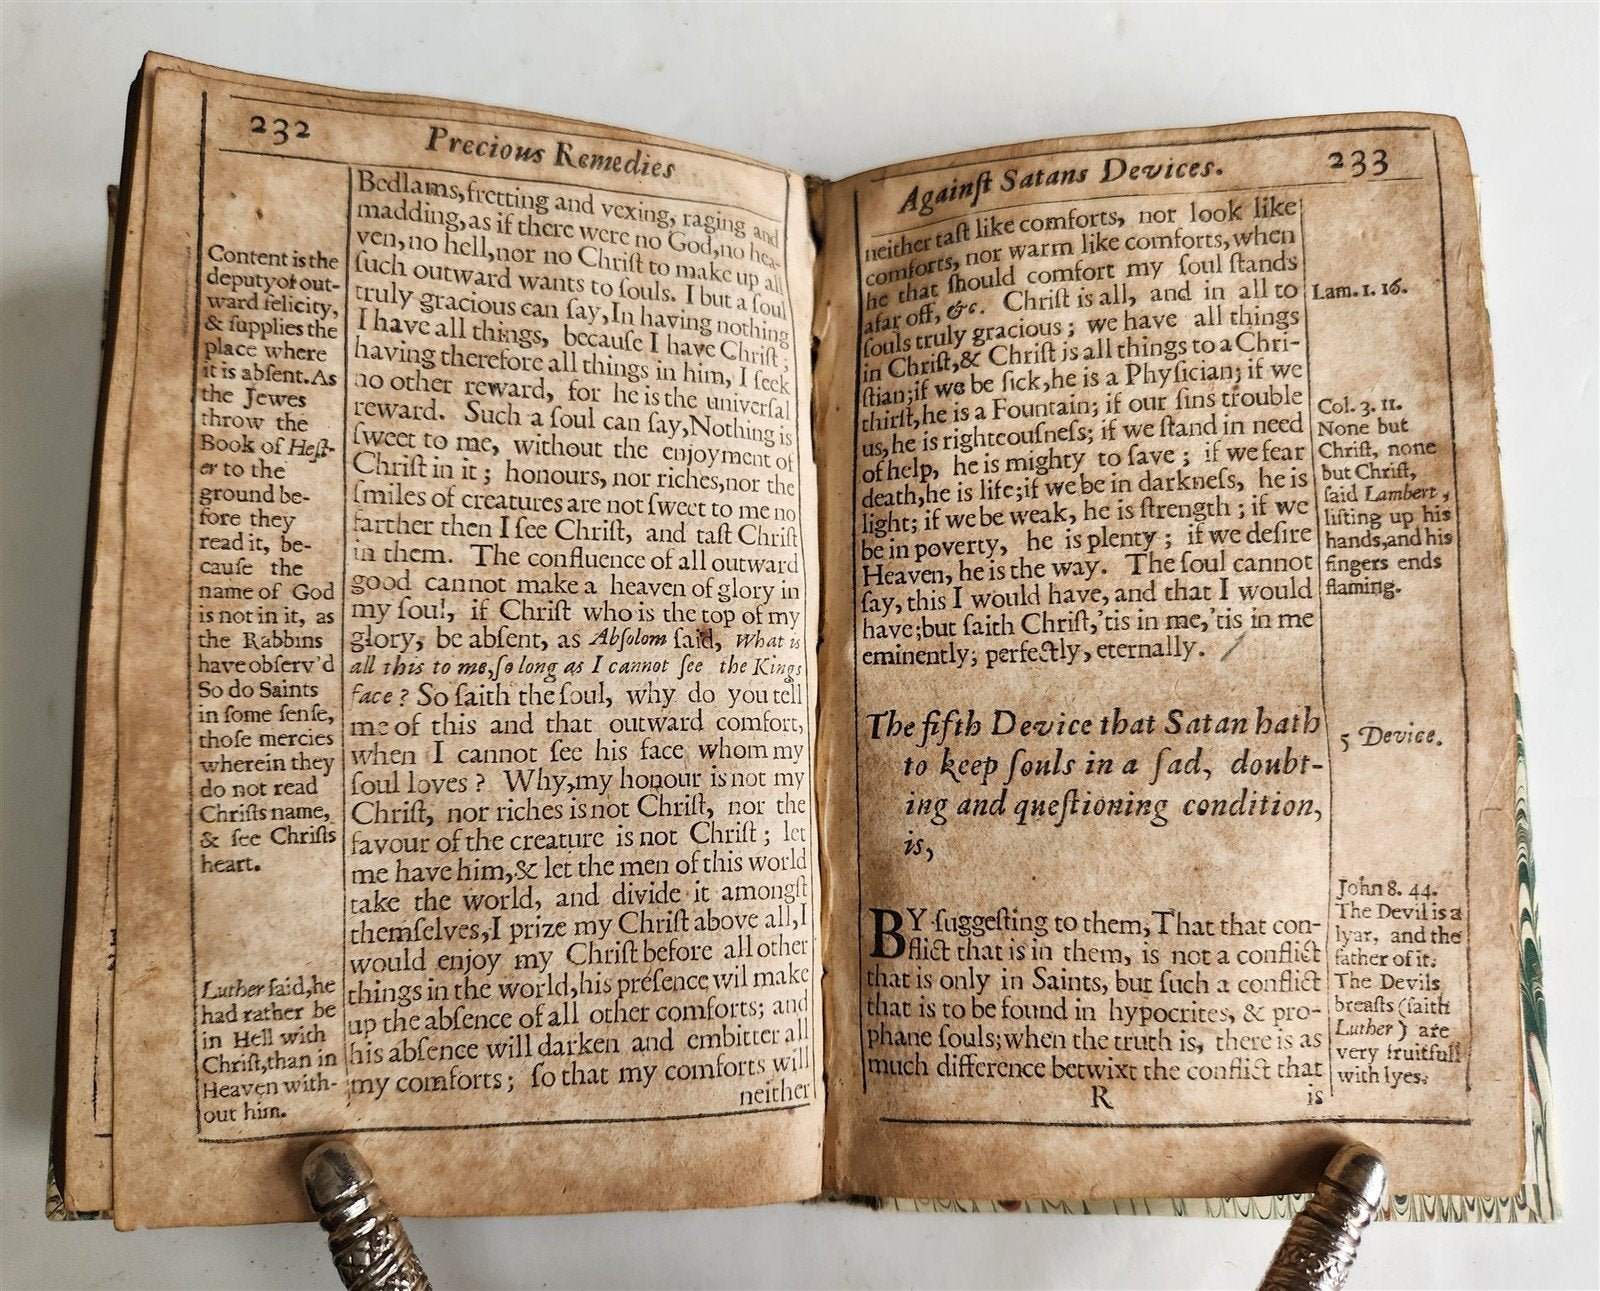 232
Precious Remedies
Content is the
deputy of out-
ward felicity,
& ſupplies the
place where
it is abſent. As
the Jewes
throw the
Book of Heſt-
er to the
ground be-
fore they
read it, be-
cauſe the
name of God
is not in it, as
the Rabbins
have obſerv'd
So do Saints
in ſome ſenſe,
thoſe mercies
wherein they
do not read
Chriſts name,
& ſee Chriſts
heart.
Luther ſaid, he
had rather be
in Hell with
Chriſt, than in
Heaven with-
out him.
Bedlams, fretting and vexing, raging and
madding, as if there were no God, no hea-
ven, no hell, nor no Chriſt to make up all
ſuch outward wants to ſouls. I but a ſoul
truly gracious can ſay, In having nothing
I have all things, becauſe I have Chriſt;
having therefore all things in him, I ſeek
no other reward, for he is the univerſal
reward. Such a ſoul can ſay, Nothing is
ſweet to me, without the enjoyment of
Chriſt in it; honours, nor riches, nor the
ſmiles of creatures are not ſweet to me no
farther then I ſee Chriſt, and taſt Chriſt
in them. The confluence of all outward
good cannot make a heaven of glory in
my ſoul, if Chriſt who is the top of my
glory, be abſent, as Abſolom ſaid, What is
all this to me, ſo long as I cannot ſee the Kings
face? So ſaith the ſoul, why do you tell
me of this and that outward comfort,
when I cannot ſee his face whom my
ſoul loves? Why, my honour is not my
Chriſt, nor riches is not Chriſt, nor the
favour of the creature is not Chriſt; let
me have him, & let the men of this world
take the world, and divide it amongſt
themſelves, I prize my Chriſt above all, I
would enjoy my Chriſt before all other
things in the world, his preſence wil make
up the abſence of all other comforts; and
his abſence will darken and embitter all
my comforts; ſo that my comforts will
neither
Againſt Satans Devices.
233
neither taſt like comforts, nor look like
comforts, nor warm like comforts, when
he that ſhould comfort my ſoul ſtands
afar off, &c. Chriſt is all, and in all to
ſouls truly gracious; we have all things
in Chriſt, & Chriſt is all things to a Chri-
ſtian; if we be ſick, he is a Phyſician; if we
thirſt, he is a Fountain; if our ſins trouble
us, he is righteouſneſs; if we ſtand in need
of help, he is mighty to ſave; if we fear
death, he is life; if we be in darkneſs, he is
light; if we be weak, he is ſtrength; if we
be in poverty, he is plenty; if we deſire
Heaven, he is the way. The ſoul cannot
ſay, this I would have, and that I would
have; but ſaith Chriſt, 'tis in me, 'tis in me
eminently, perfectly, eternally.
The fifth Device that Satan hath
to keep ſouls in a ſad, doubt-
ing and queſtioning condition,
is,
BY ſuggeſting to them, That that con-
flict that is in them, is not a conflict
that is only in Saints, but ſuch a conflict
that is to be found in hypocrites, & pro-
phane ſouls; when the truth is, there is as
much difference betwixt the conflict that
R
is
Lam. 1. 16.
Col. 3. 11.
None but
Chriſt, none
but Chriſt,
ſaid Lambert,
lifting up his
hands, and his
fingers ends
flaming.
5 Device.
John 8. 44.
The Devil is a
lyar, and the
father of it.
The Devils
breaſts (ſaith
Luther) are
very fruitfull
with lyes.